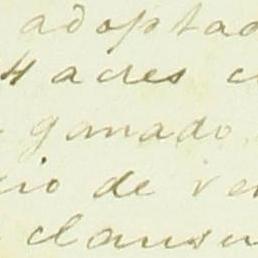 adoptad
4 acres c
ganado
cio de ve
clausu